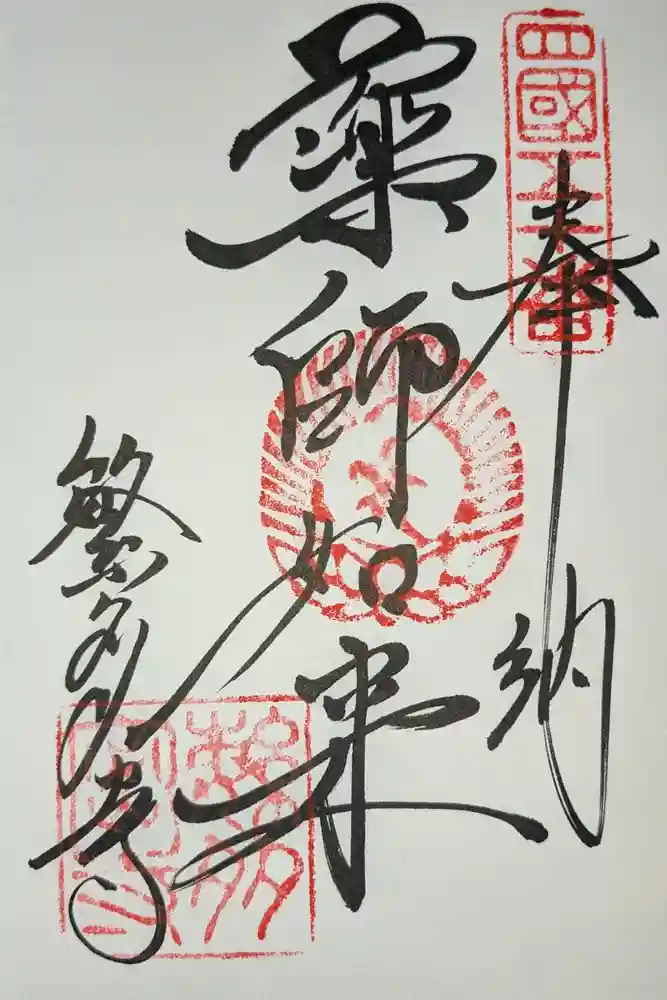 四國五十番
奉納
薬師如来
繁多寺